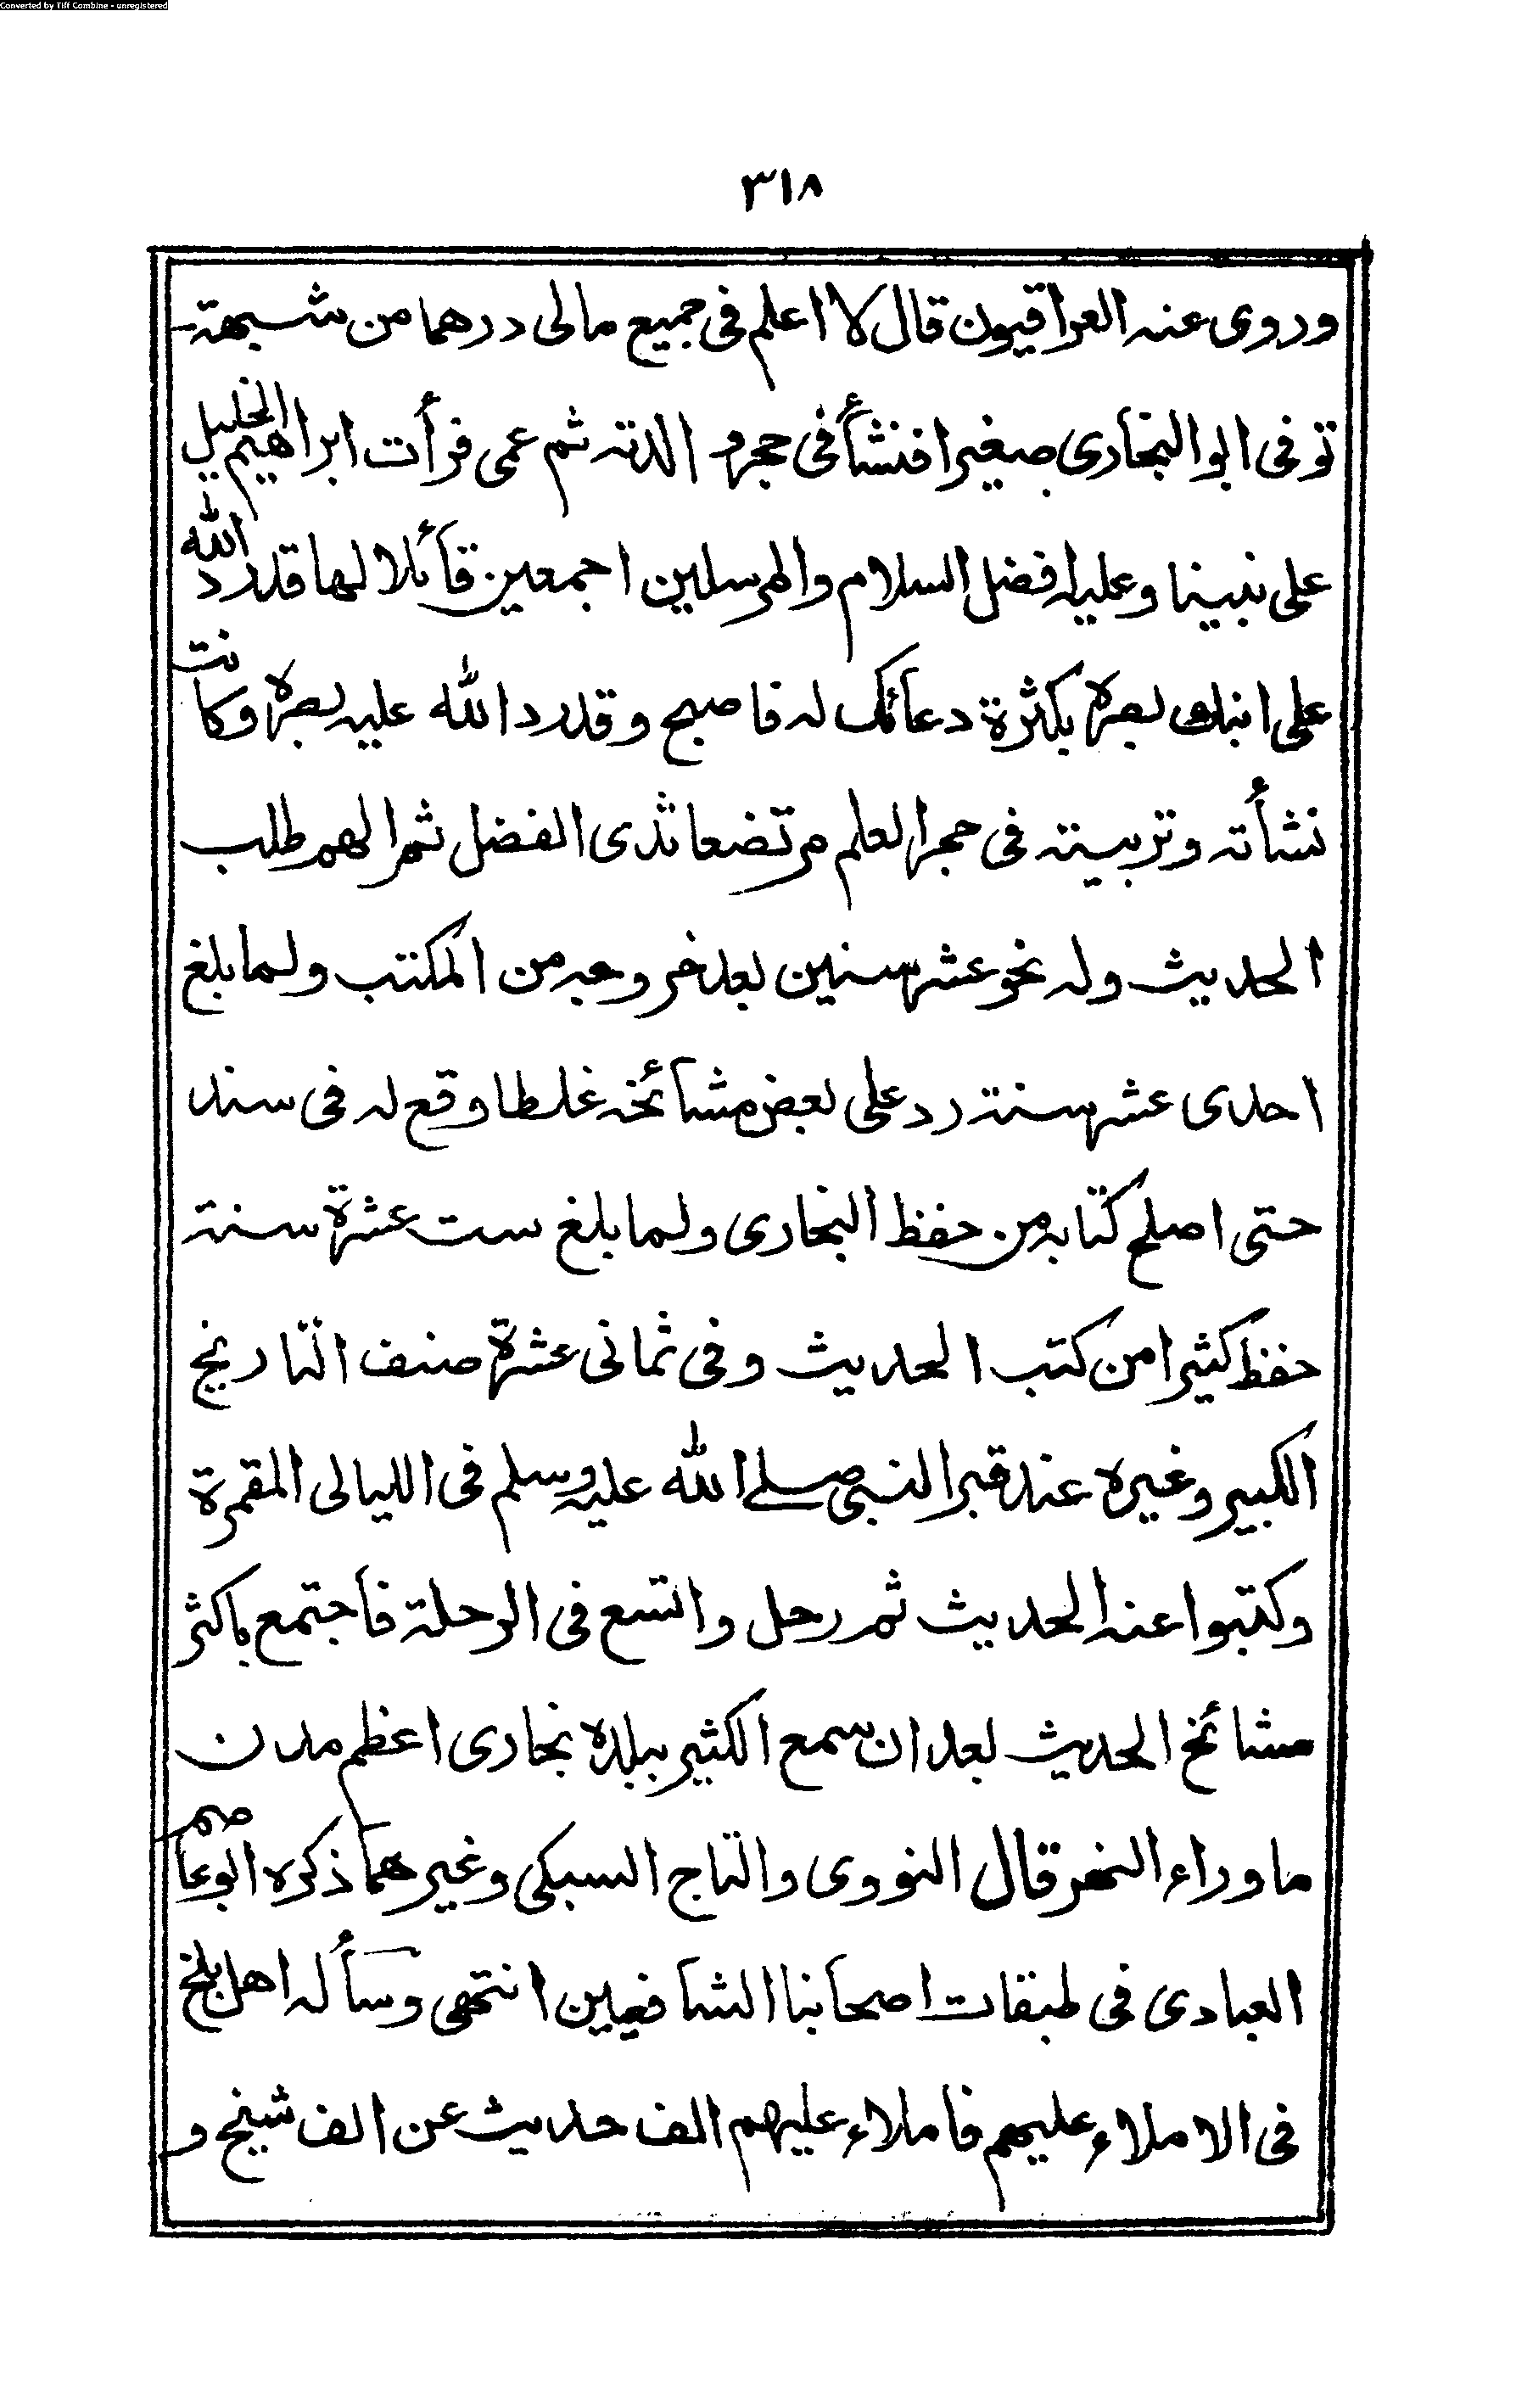 Converted by Tiff Combine - unregistered
٣١٨
وروى عنه العراقيون قال لا اعلم فى جميع مالى درهما من شبهة
توفى ابو البخارى صغيرا فنشأ فى حجر والدته ثم عمى فرأت ابراهيم الخليل
على نبينا وعليه افضل السلام والمرسلين اجمعين قائلا لها قد رد الله
على ابنك بصره بكثرة دعائك له فاصبح وقد رد الله عليه بصره وكانت
نشأته وتربيته فى حجر العلم مرتضعا ثدى الفضل ثم الهم طلب
الحديث وله نحو عشر سنين بعد خروجه من المكتب ولما بلغ
احدى عشر سنة رد على بعض مشائخه غلطا وقع له فى سند
حتى اصلح كتابه من حفظ البخارى ولما بلغ ست عشرة سنة
حفظ كثيرا من كتب الحديث وفى ثمانى عشرة صنف التاريخ
الكبير وغيره عند قبر النبى صلے الله عليه وسلم فى الليالى المقمرة
وكتبوا عنه الحديث ثم رحل واتسع فى الرحلة فاجتمع باكثر
مشائخ الحديث بعد ان سمع الكثير ببلده بخارى اعظم مدن
ما وراء النهر قال النووى والتاج السبكى وغيرهما ذكره ابو عاصم
العبادى فى طبقات اصحابنا الشافعيين انتهى وسأله اهل بلخ
فى الاملاء عليهم فاملاء عليهم الف حديث عن الف شيخ و